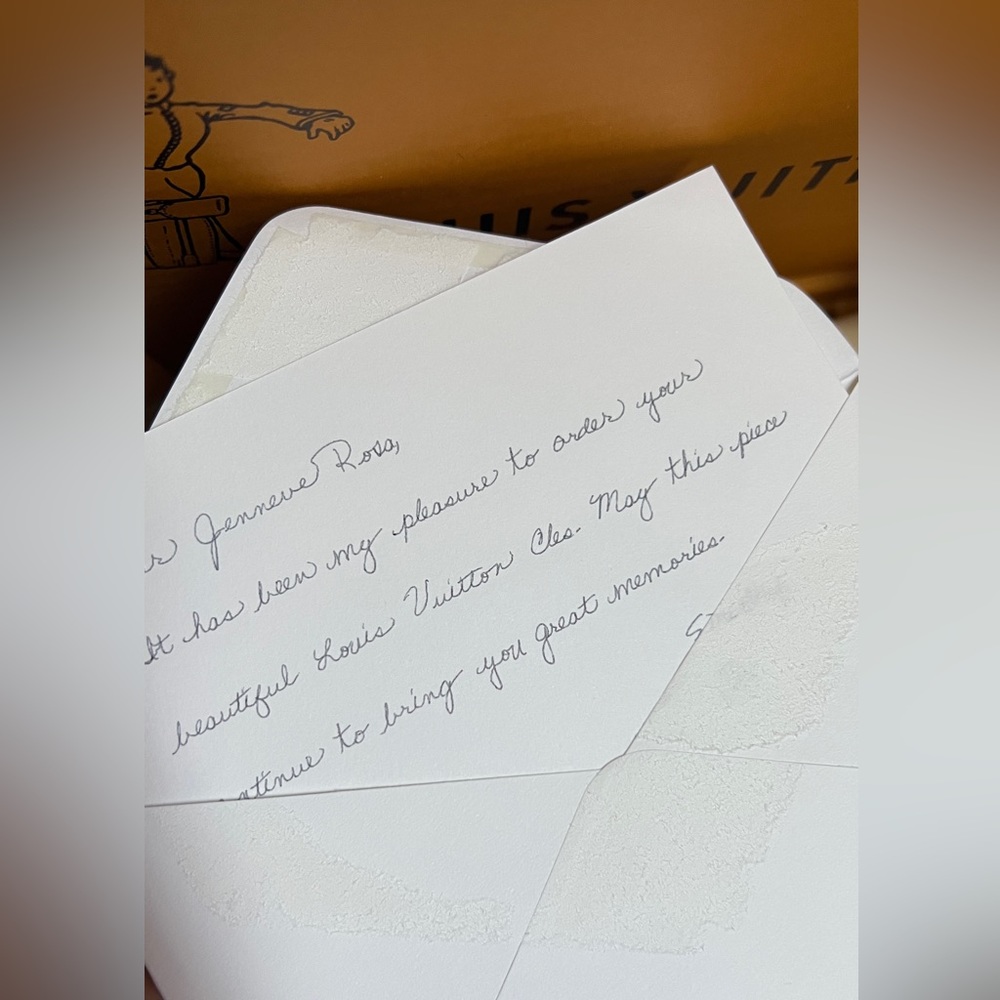 UIS VUITT
r Jenneve Rosa,
It has been my pleasure to order your
beautiful Louis Vuitton Cles. May this piece
ntinue to bring you great memories.
S